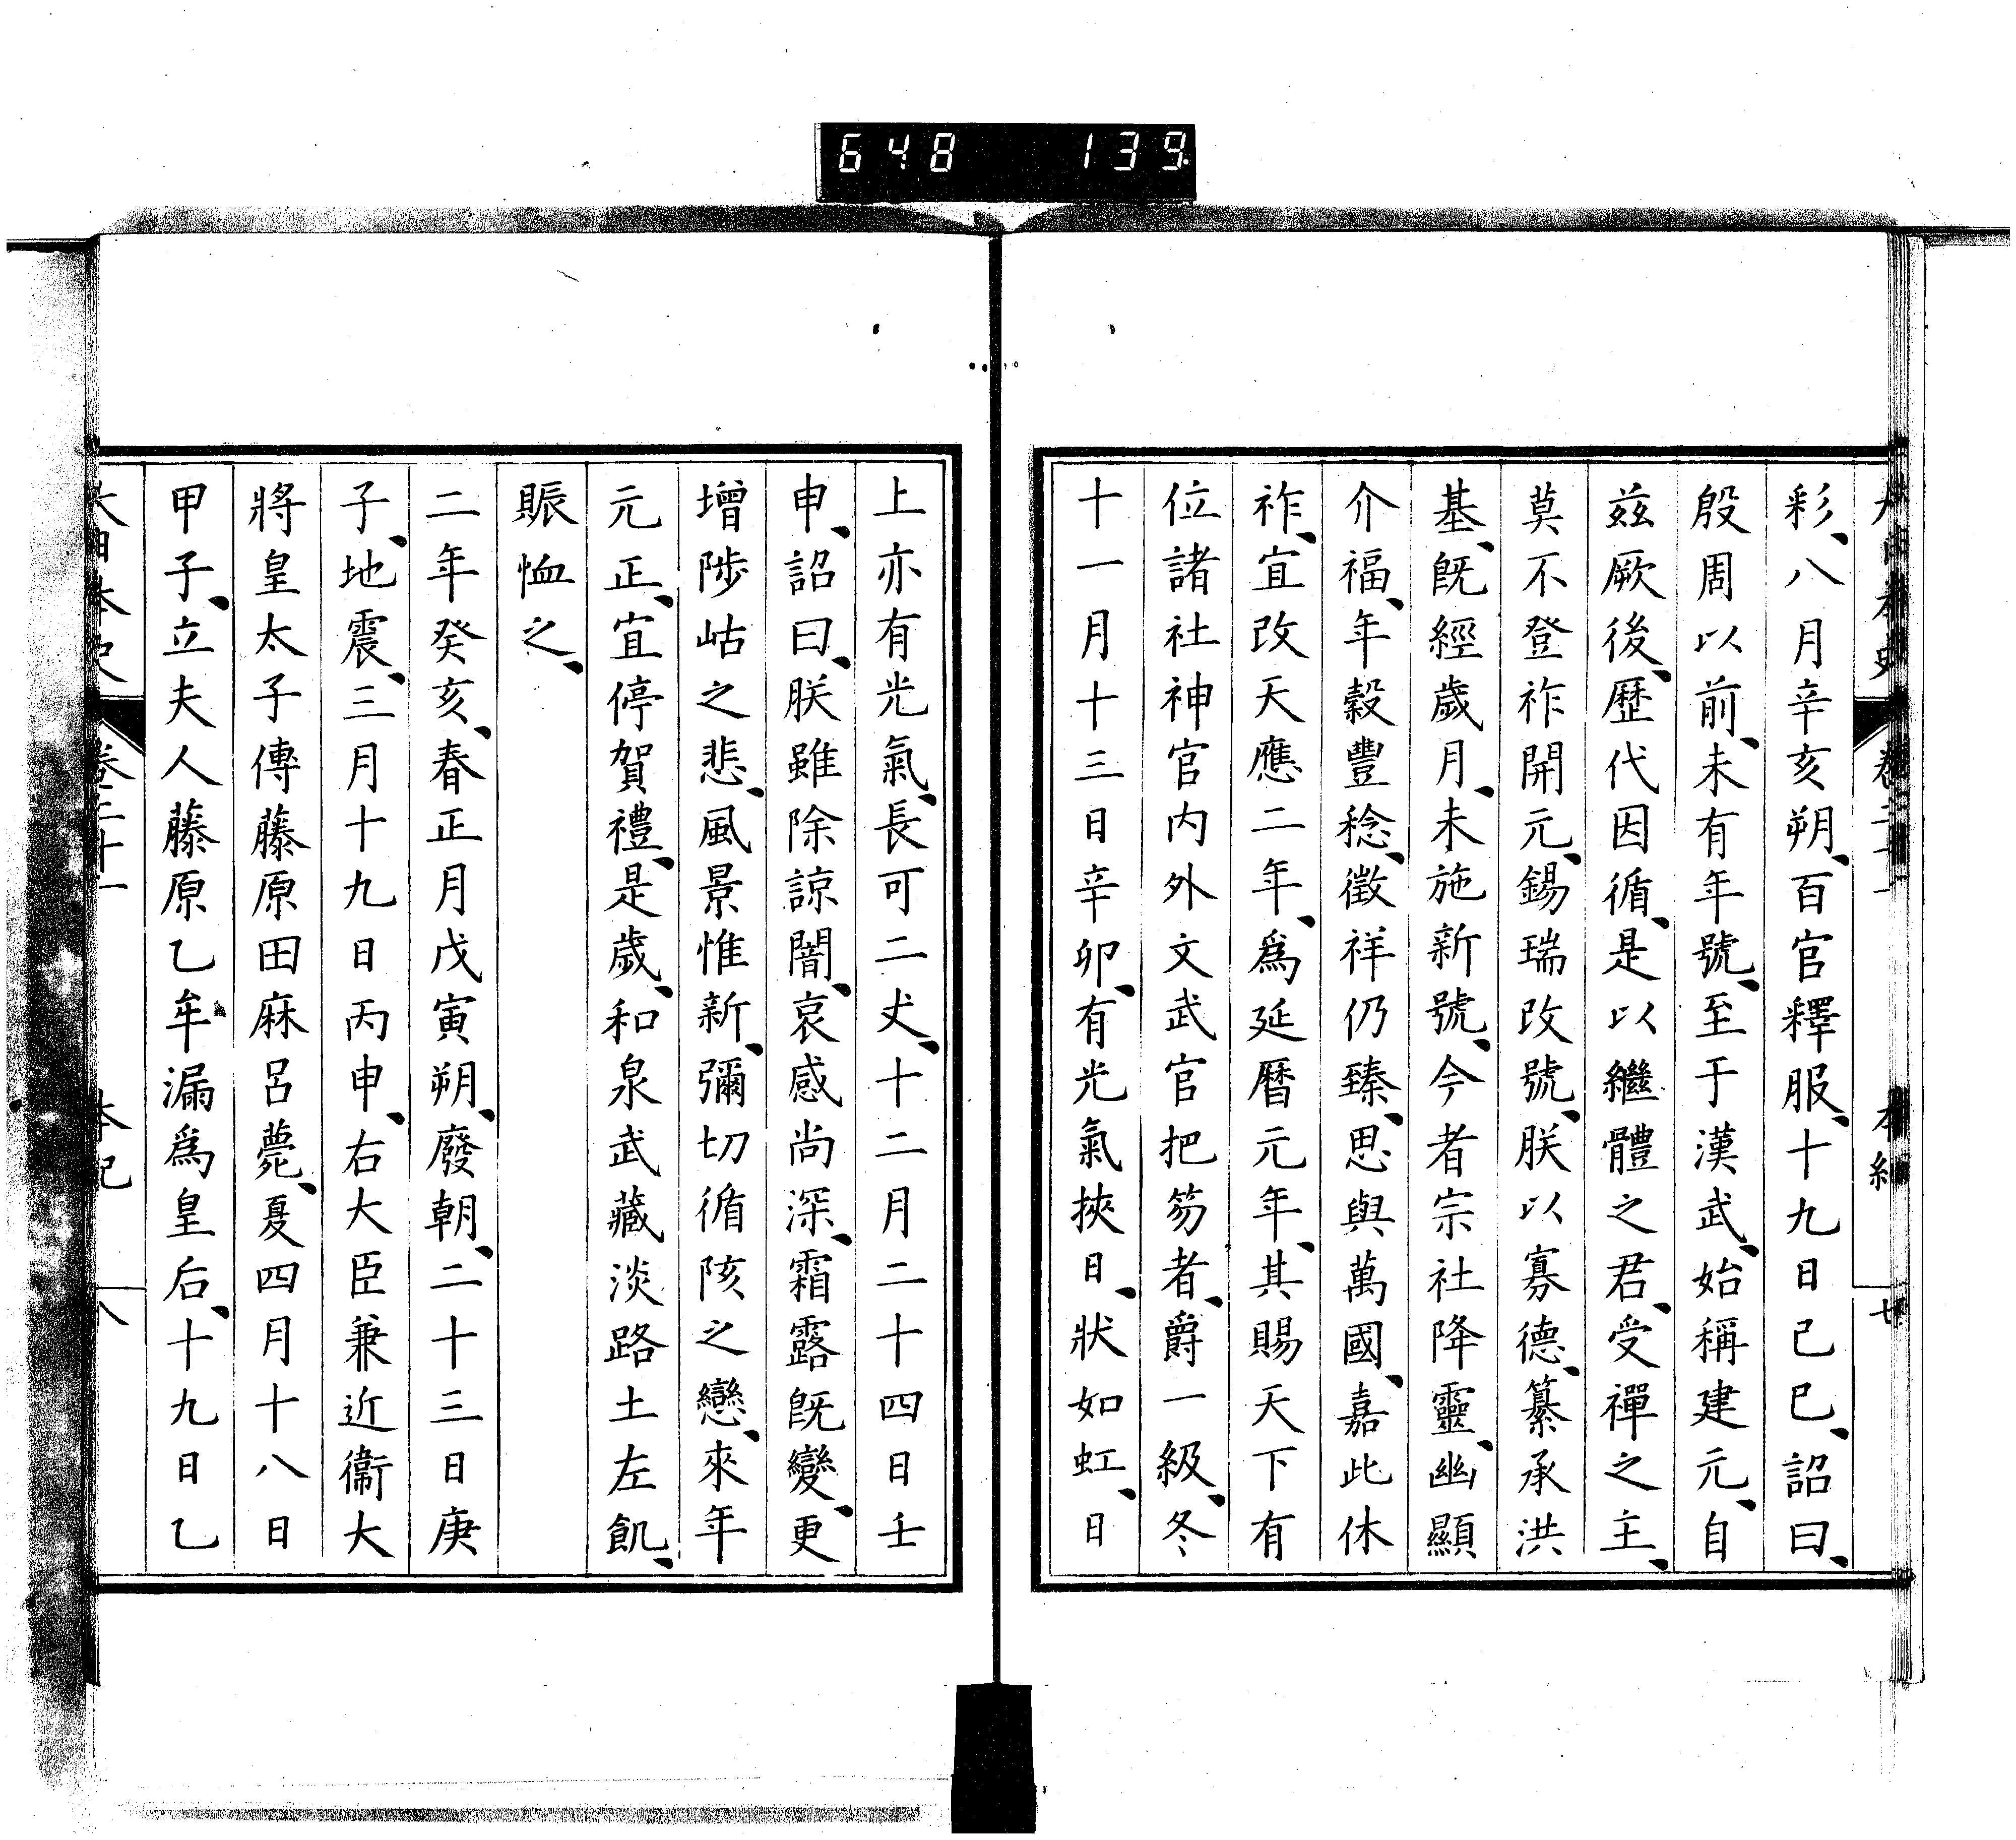 648 139
大日本史 卷二十一 本紀 七
彩、八月辛亥朔、百官釋服、十九日己巳、詔曰、
殷周以前、未有年號、至于漢武、始稱建元、自
茲厥後、歷代因循、是以繼體之君、受禪之主、
莫不登祚開元、錫瑞改號、朕以寡德、纂承洪
基、既經歲月、未施新號、今者宗社降靈、幽顯
介福、年穀豐稔、徵祥仍臻、思與萬國、嘉此休
祚、宜改天應二年、爲延曆元年、其賜天下有
位諸社神官内外文武官把笏者、爵一級、冬
十一月十三日辛卯、有光氣挾日、狀如虹、日
上亦有光氣、長可二丈、十二月二十四日壬
申、詔曰、朕雖除諒闇、哀感尚深、霜露既變、更
增陟岵之悲、風景惟新、彌切循陔之戀、來年
元正、宜停賀禮、是歲、和泉武藏淡路土左飢、
賑恤之、
二年癸亥、春正月戊寅朔、廢朝、二十三日庚
子、地震、三月十九日丙申、右大臣兼近衞大
將皇太子傅藤原田麻呂薨、夏四月十八日
甲子、立夫人藤原乙牟漏爲皇后、十九日乙
大日本史 卷二十一 本紀 八